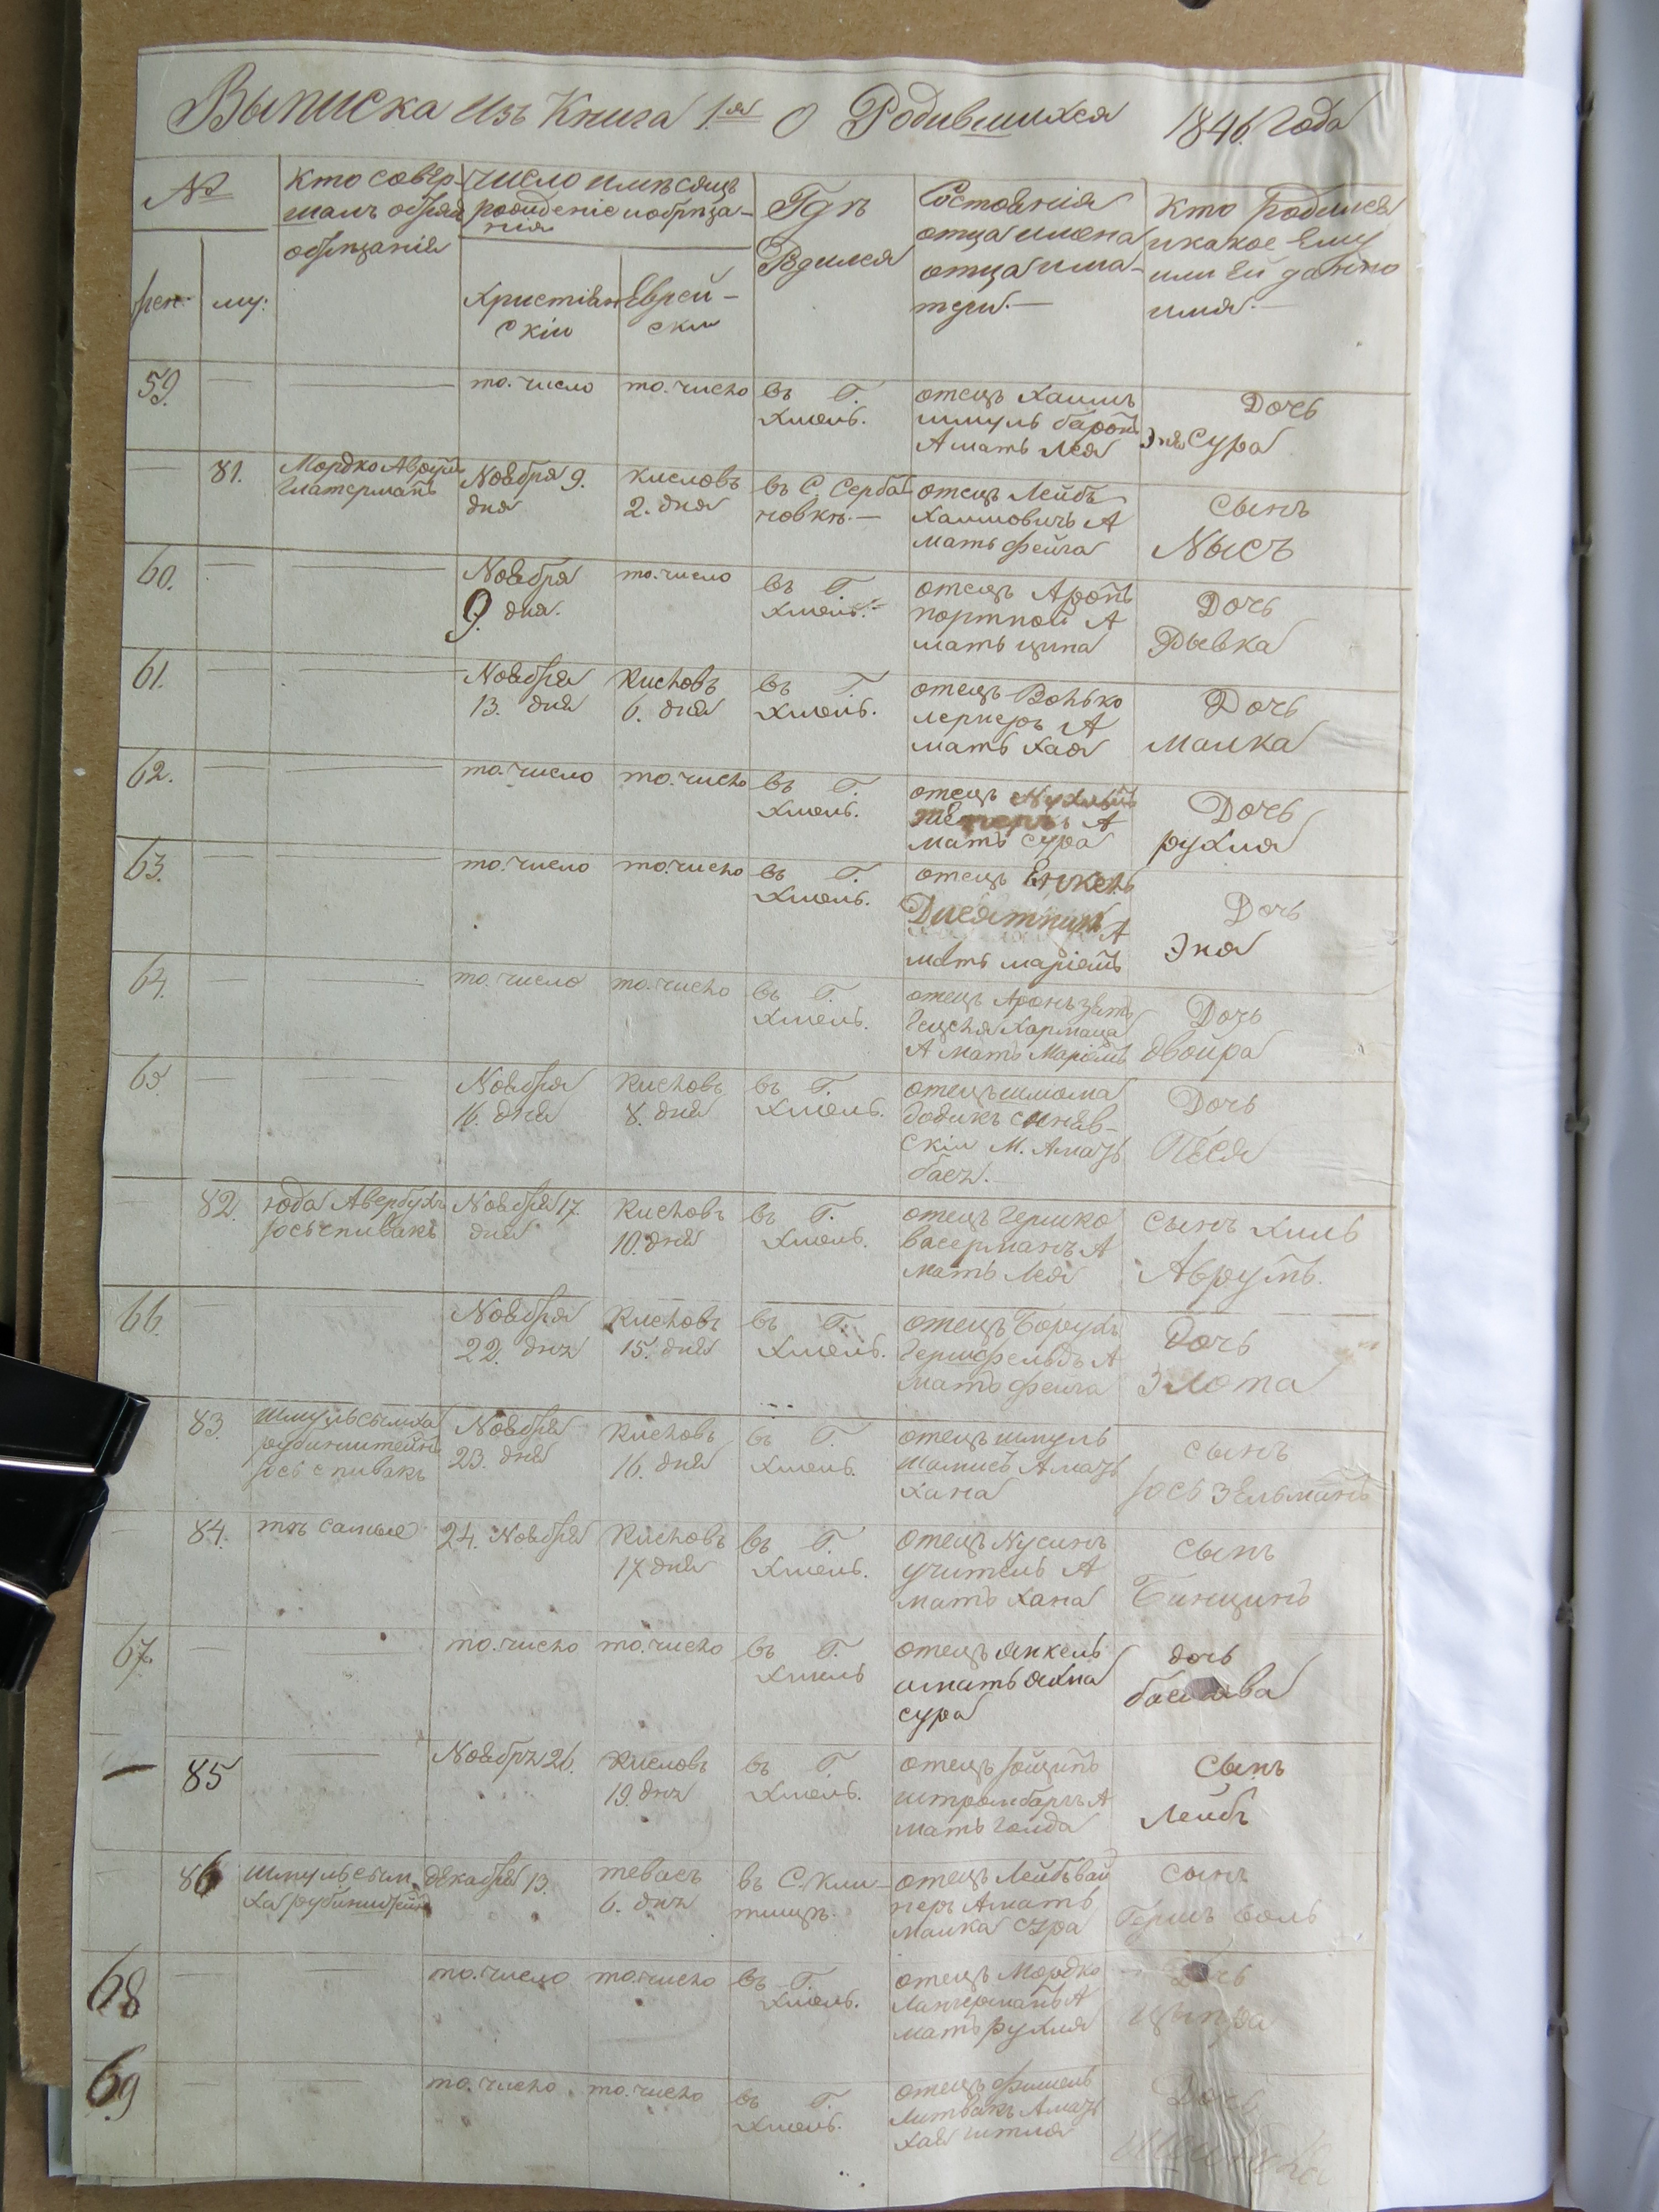 Выписка Изъ Книга 1.я О Родившихся 1846. Года
№
жен: му:
Кто совер-
шалъ обряд
обрѣзанія
число и мѣсяцъ
рожденіе и обрѣза-
нія
Христіан
скій
Еврей-
скій
Гдѣ
Родился
Состоянія
отца имена
отца и ма-
тери.—
Кто родился
и какое Ему
или Ей данно
имя.—
59. — — то. число то. число въ Г.
Хмель.
отецъ Хаимъ
шмуль баронъ
А мать Лея
Дочь
Эня Сура
— 81. Мордко Аврумъ
Гматерманъ
Ноября 9.
дня
кисловъ
2. дня
въ С. Серба
новкѣ.—
отецъ Лейбъ
Хаимовичъ А
мать фейга
сынъ
Нысъ
60. — — Ноября
9. дня.
то. число въ Г.
Хмель.
отецъ Аронъ
портной А
мать ципа
Дочь
Рывка
61. — — Ноября
13. дня
Кисловъ
6. дня
въ Г.
Хмель.
отецъ Волько
лернеръ А
мать Хая
Дочь
Малка
62. — — то. число то. число въ Г.
Хмель.
отецъ
А
мать сура
Дочь
рухля
63. — — то. число то. число въ Г.
Хмель.
отецъ Енкель
Десятникъ
А
мать маріямъ
Дочь
Эня
64. — — то. число то. число въ Г.
Хмель.
отецъ Аронъ зять
Гецеля Хармаца
А мать Маріямъ
Дочь
двойра
65. — — Ноября
16. дня
Кисловъ
8. дня
въ Г.
Хмель.
отецъ шлома
додикъ синяв-
скій М. А мать
бася.
Дочь
Песя
82. юда Авербухъ
іось спивакъ
Ноября 17.
дня
Кисловъ
10. дня
въ Г.
Хмель.
отецъ Гершко
васерманъ А
мать Лея
сынъ Хиль
Аврумъ.
66. — Ноября
22. дня
Кисловъ
15. дня
въ Г.
Хмель.
отецъ Борухъ
Гершфельдъ А
мать фейга
Дочь
Злота
83. шмуль сымха
рубинштейнъ
іось спивакъ
Ноября
23. дня
Кисловъ
16. дня
въ Г.
Хмель.
отецъ шмуль
шамисъ А мать
Хана
сынъ
іось Зельманъ
84. тѣ самые 24. Ноября Кисловъ
17. дня
въ Г.
Хмель.
отецъ Нусинъ
учитель А
мать Хана
сынъ
Бинцинъ
67. — — то. число то. число въ Г.
Хмель
отецъ янкель
и мать яхна
сура
дочь
— 85 — Ноября 26. Кисловъ
19. дня
въ Г.
Хмель.
отецъ іойцинъ
штромбаргъ А
мать Голда
Сынъ
Лейбъ
86 шмуль сым
ха рубинштейнъ
декабря 13. теваеъ
6. дня
въ С. Кли-
тищѣ.
отецъ Лейбъ вай
неръ А мать
малка сура
сынъ
Гершъ волъ
68 — — то. число то. число въ Г.
Хмель.
отецъ Мордко
Лангерманъ А
мать рухля
Дочь
Ципра
69 — — то. число то. число въ Г.
Хмель.
отецъ фишель
Литвакъ А мать
хая итля
Дочь